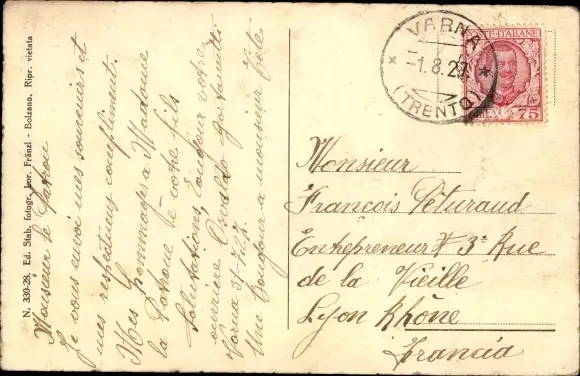 Monsieur le Patron
Je vous envoi mes souvenirs et
mes respectueux compliment.
Mes hommages a Madame
la Patrone te votre fils
Salutations, toujour votre
ouvriere Osvaldo
Varna 31/7.27.
Une Bonjour a monsieur
N. 330-26. Ed. Stab. fotogr. Lor. Fränzl - Bolzano. Ripr. vietata
VARNA
-1.8.27.
(TRENTO)
POSTE-ITALIANE
75
Monsieur
François Peturaud
Entrepreneur # 3 Rue
de la Vieille
Lyon Rhône
Francia